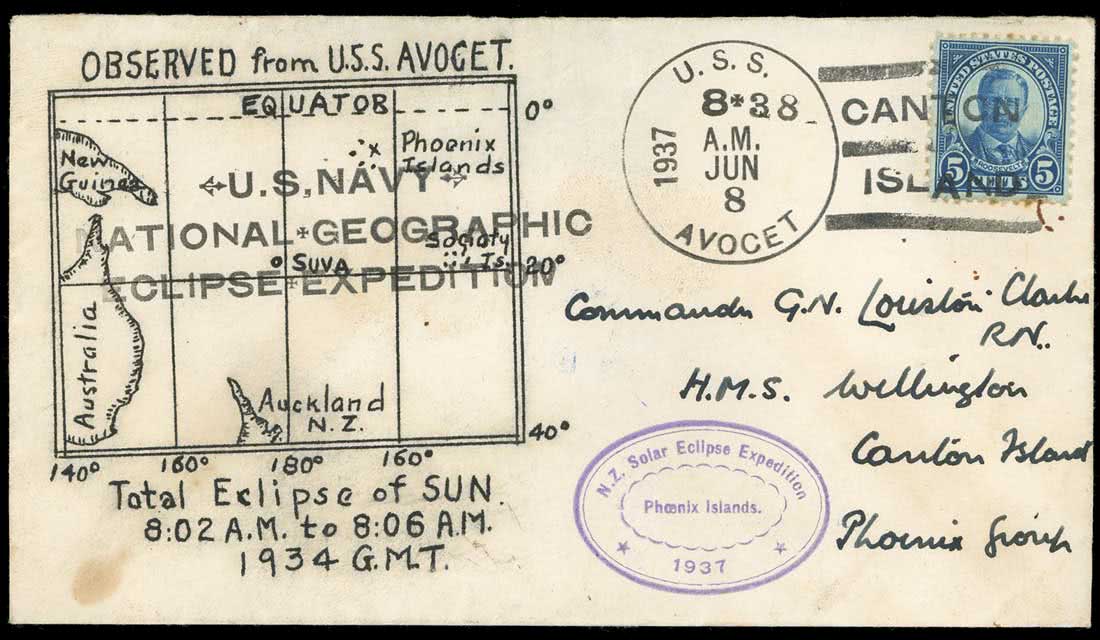 OBSERVED from U.S.S. AVOCET.
EQUATOR
0°
New Guinea
Phoenix Islands
U.S. NAVY
NATIONAL GEOGRAPHIC
ECLIPSE EXPEDITION
Society Is.
SUVA
20°
Australia
Auckland
N.Z.
40°
140° 160° 180° 160°
Total Eclipse of SUN.
8:02 A.M. to 8:06 A.M.
1934 G.M.T.
U.S.S.
8 38
A.M.
JUN
8
1937
AVOCET
CANTON
ISLAND
UNITED STATES POSTAGE
ROOSEVELT
5 CENTS 5
Commander G.N. Clarke
R.N.
H.M.S. Wellington
Canton Island
Phoenix Group
N.Z. Solar Eclipse Expedition
Phœnix Islands.
1937